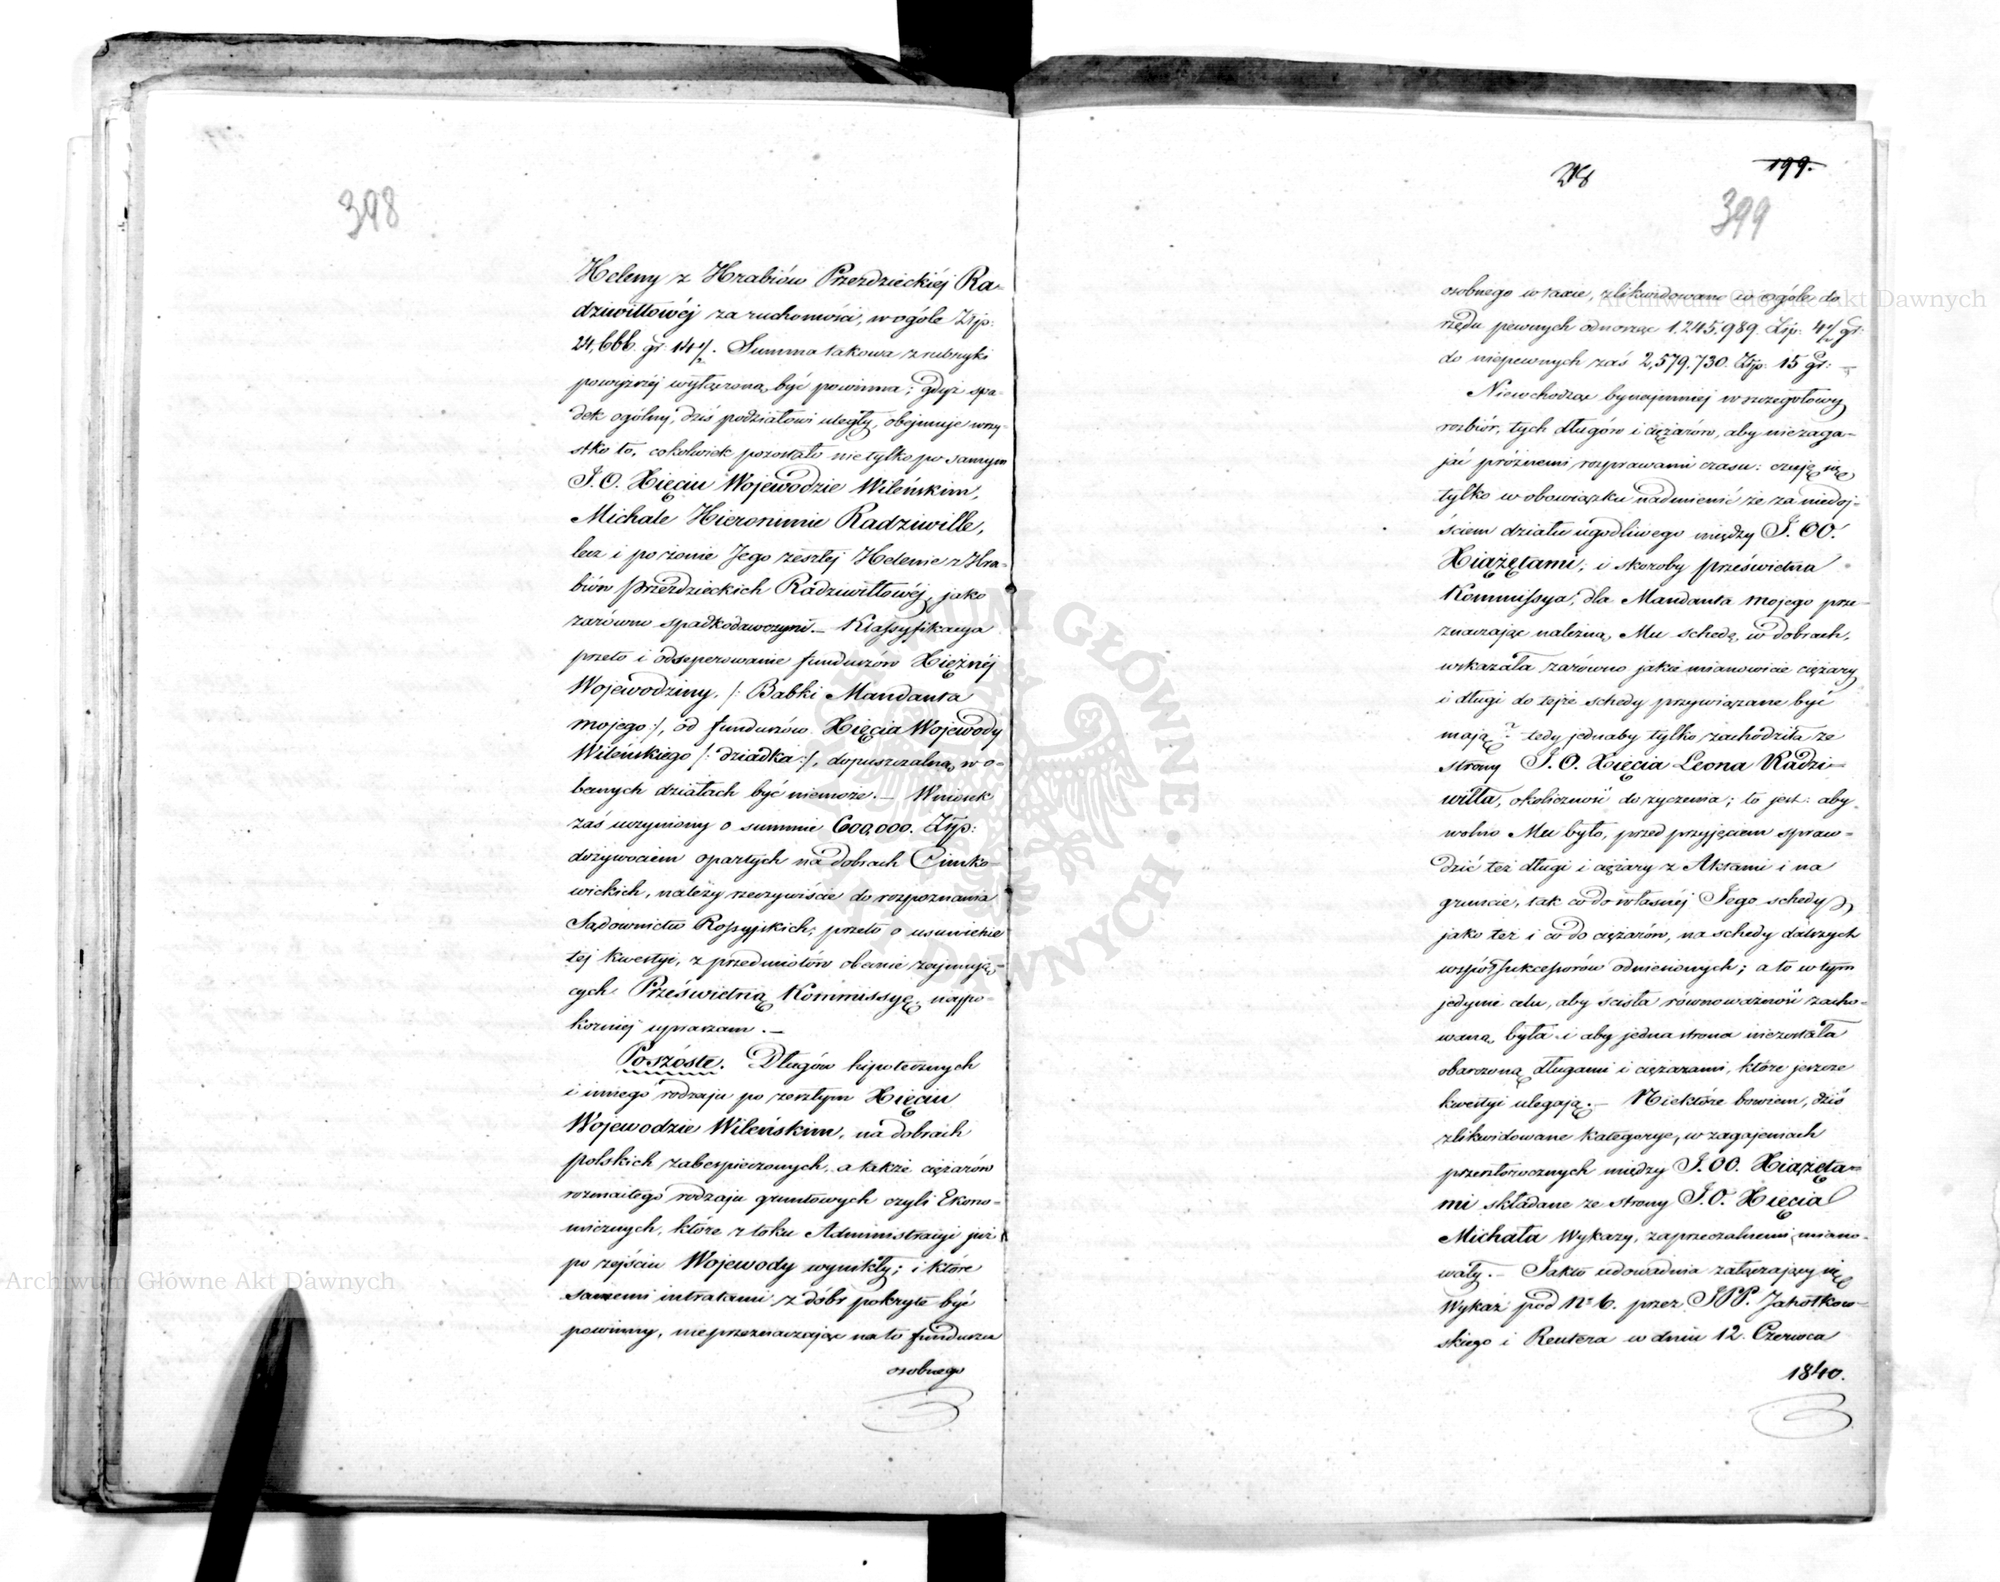 398
Heleny z Hrabiów Przezdzieckiéj Ra-
dziwiłłowéj za ruchomości, w ogóle Złp:
24,666. gr: 14½. Summa takowa z rubryki
powyższéj wyłączoną być powinna; gdyż spa-
dek ogólny, dziś podziałowi uległy, obejmuje wszy-
stko to, cokolwiek pozostało nietylko po samym
J. O. Xięciu Wojewodzie Wileńskim,
Michale Hieronimie Radziwille,
lecz i po żonie Jego zeszłej Helenie z Hra-
biów Przezdzieckich Radziwiłłowéj, jako
zarówno spadkodawczyni. — Klassyfikacya
przeto i odseperowanie funduszów Xiężnéj
Wojewodziny, /: Babki Mandanta
mojego :/, od funduszów Xięcia Wojewody
Wileńskiego /: dziadka :/, dopuszczalną, w o-
becnych działach być niemoże. — Wniosek
zaś uczyniony o summie 600,000. Złp:
dożywociem opartych na dobrach Cimko-
wickich, należy rzeczywiście do rozpoznania
Sądownictw Rossyjskich; przeto o usunienie
téj kwestyi, z przedmiotów obecnie zajmują-
cych Prześwietną Kommissyę, najpo-
korniej upraszam. —
Poszóste. Długów hipotecznych
i innego rodzaju po zeszłym Xięciu
Wojewodzie Wileńskim, na dobrach
polskich zabezpieczonych, a także ciężarów
rozmaitego rodzaju gruntowych czyli Ekono-
micznych, które z toku Administracyi już
po zejściu Wojewody wynikły; i które
samemi intratami z dóbr pokryte być
powinny, nieprzeznaczając na to funduszu
osobnego
218
199.
399
osobnego w taxie, zlikwidowano w ogóle do
rzędu pewnych odnosząc 1.245.989. Złp: 4½ gr:
do niepewnych zaś 2,579.730. Złp: 15 gr: —
Niewchodząc bynajmniej w szczegółowy
rozbiór, tych długów i ciężarów, aby niezaga-
jać próżnemi rozprawami czasu: czuję się
tylko w obowiązku nadmienić że za niedoj-
ściem działu ugodliwego między J. OO.
Xiążętami, i skoroby prześwietna
Kommissya, dla Mandanta mojego prze-
znaczając należną Mu schedę, w dobrach,
wskazała zarówno jakie mianowicie ciężary
i długi do tejże schedy przywiązane być
mają? tedy jednaby tylko zachodziła ze
strony J. O. Xięcia Leona Radzi-
wiłła, okoliczność do życzenia; to jest: aby
wolno Mu było, przed przyjęciem spraw-
dzić też długi i ciężary z Aktami i na
gruncie, tak co do własnéj Jego schedy,
jako też i co do ciężarów, na schedy dalszych
współsukcessorów odniesionych; a to w tym
jedynie celu, aby ścisła równoważność zacho-
waną była i aby jedna strona niezostała
obarczoną długami i ciężarami, które jeszcze
kwestyi ulegają. — Niektóre bowiem, dziś
zlikwidowane kategorye, w zagajeniach
przeszłorocznych między J. OO. Xiążęta-
mi składane ze strony J. O. Xięcia
Michała Wykazy, zaprzeczalnemi miano-
wały. — Jakto udowadnia załączający się
Wykaz pod Nº 6. przez JPP. Jahołkow-
skiego i Reutera w dniu 12. Czerwca
1840.
Archiwum Główne Akt Dawnych
Archiwum Główne Akt Dawnych